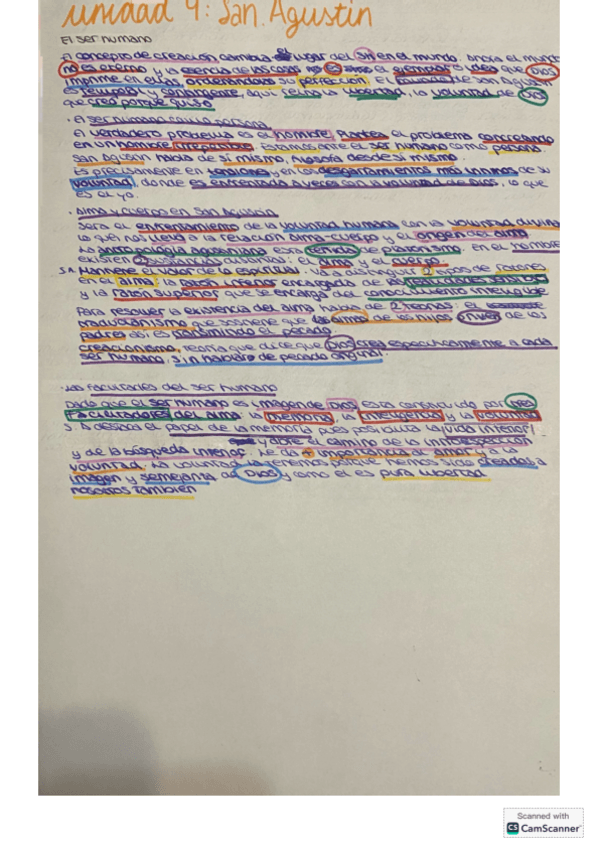 unidad 4: San. Agustin
El ser humano
El concepto de creación cambia el lugar del SH en el mundo. Ahora el mundo
no es eterno y la esencia de las cosas es el ejemplar o idea que Dios
imprime en ellas, ordenandolas su perfección. El mundo de San Agustin
es temporal y contingente, aquí reina la libertad, la voluntad de Dios
que creó porque quiso
· El ser humano como persona
El verdadero problema es el hombre. Plantea el problema concretando
en un hombre irrepetible. Estamos ante el ser humano como persona
San Agustin habla de sí mismo, filosofa desde sí mismo.
Es precisamente en tensiones y en los desgarramientos más íntimos de su
voluntad, donde es enfrentada a veces con la voluntad de Dios, lo que
es el yo.
· Alma y cuerpo en San Agustin
Será el enfrentamiento de la voluntad humana con la voluntad divina
lo que nos lleva a la relación alma-cuerpo y el origen del alma
La antropología agustiniana está teñida de platonismo: en el hombre
existen 2 sustancias distintas: el alma y el cuerpo.
S.A Mantiene el valor de lo espiritual. Va a distinguir 2 tipos de razones
en el alma: la razón inferior encargada de las realidades sensibles
y la razón superior que se encarga del conocimiento inteligible
Para resolver la existencia del alma habla de 2 teorías: el
traducianismo que sostiene que las almas de los hijos de los
padres así es transmitido el pecado
creacionismo, teoría que dice que Dios crea específicamente a cada
ser humano, sin hablar de pecado original.
· Las facultades del ser humano
Dado que el ser humano es imagen de Dios está constituido por tres
facultades del alma: la memoria, la inteligencia y la voluntad
S.A destaca el papel de la memoria: es posible la vida interior
y abre el camino de la introspección
y de la búsqueda interior. Le da + importancia al amor y a la
voluntad. La voluntad la tenemos porque hemos sido creados a
imagen y semejanza de Dios y como él es pura libertad
nosotros también
Scanned with
CS CamScanner